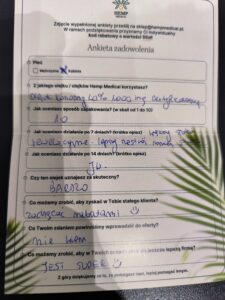 HEMP
MEDICAL
Zdjęcie wypełnionej ankiety prześlij na sklep@hempmedical.pl
W ramach podziękowania przyznamy Ci indywidualny
kod rabatowy o wartości 50zł!
Ankieta zadowolenia
Płeć
Mężczyzna Kobieta
Z jakiego olejku / olejków Hemp Medical korzystasz?
Olejek konopny
Jak oceniasz sposób zapakowania? (w skali od 1 do 10)
10
Jak oceniasz działanie po 7 dniach? (krótko opisz)
Jak oceniasz działanie po 14 dniach? (krótko opisz)
Czy ten olejek uznajesz za skuteczny?
BARDZO
Co możemy zrobić, aby zyskać w Tobie stałego klienta?
zachęcać rabatami
Co Twoim zdaniem powinniśmy wprowadzić do oferty?
nie wiem
Co możemy zrobić, aby w Twoich oczach być jeszcze lepszą firmą?
JEST SUPER
Z góry dziękujemy za to, że pomagasz nam, lepiej pomagać innym.